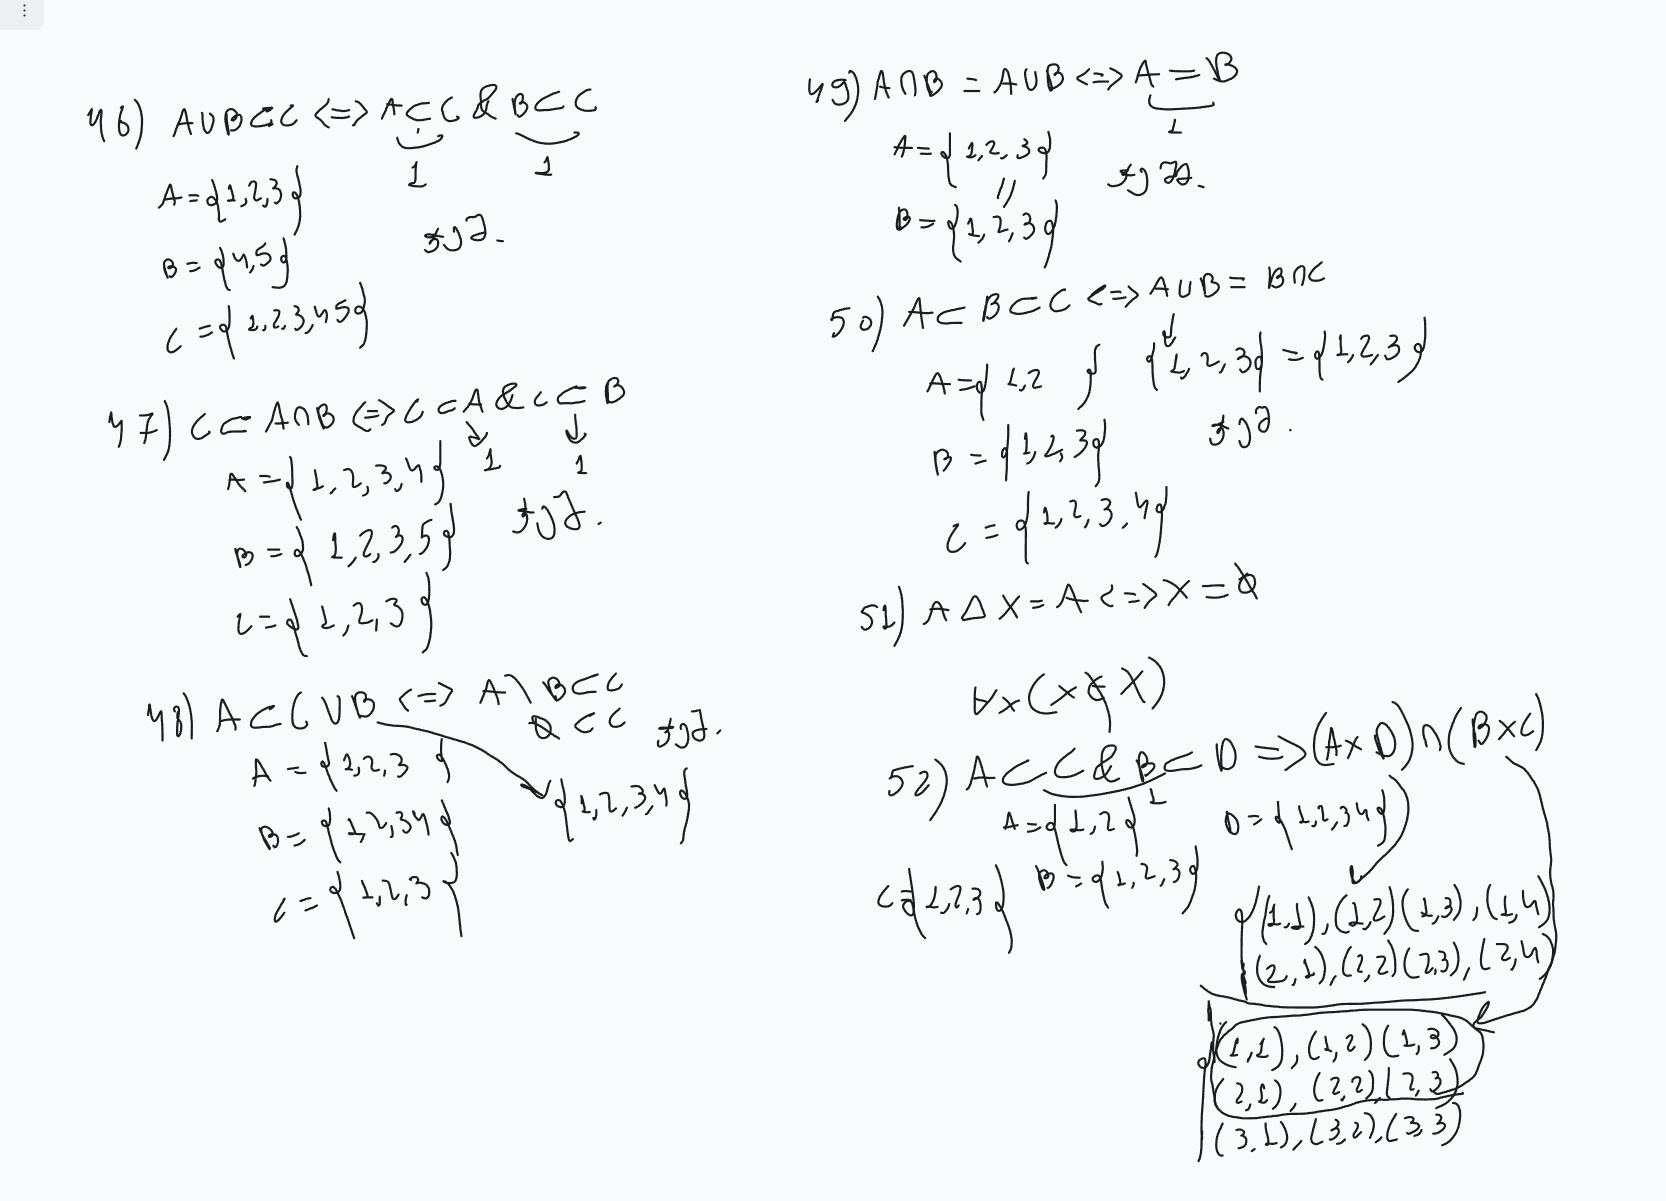 46) A∪B⊂C <=> A⊂C & B⊂C
1 1
A={1,2,3}
B={4,5}
C={1,2,3,4 5}
47) C⊂A∩B <=> C⊂A & C⊂B
1 1
A={1,2,3,4}
B={1,2,3,5}
C={1,2,3}
48) A⊂C∪B <=> A\B⊂C
∅⊂C
A={1,2,3}
{1,2,3,4}
B={1,2,3 4}
C={1,2,3}
49) A∩B=A∪B <=> A=B
1
A={1,2,3}
=
B={1,2,3}
50) A⊂B⊂C <=> A∪B=B∩C
A={1,2} {1,2,3}={1,2,3}
B={1,2,3}
C={1,2,3,4}
51) A△X=A <=> X=∅
∀x(x∉X)
52) A⊂C & B⊂D => (A×D)∩(B×C)
1
A={1,2} D={1,2,3 4}
C={1,2,3} B={1,2,3}
{(1,1),(1,2)(1,3),(1,4)
(2,1),(2,2)(2,3),(2,4)
{(1,1),(1,2)(1,3)
(2,1),(2,2),(2,3)
(3,1),(3,2),(3,3)